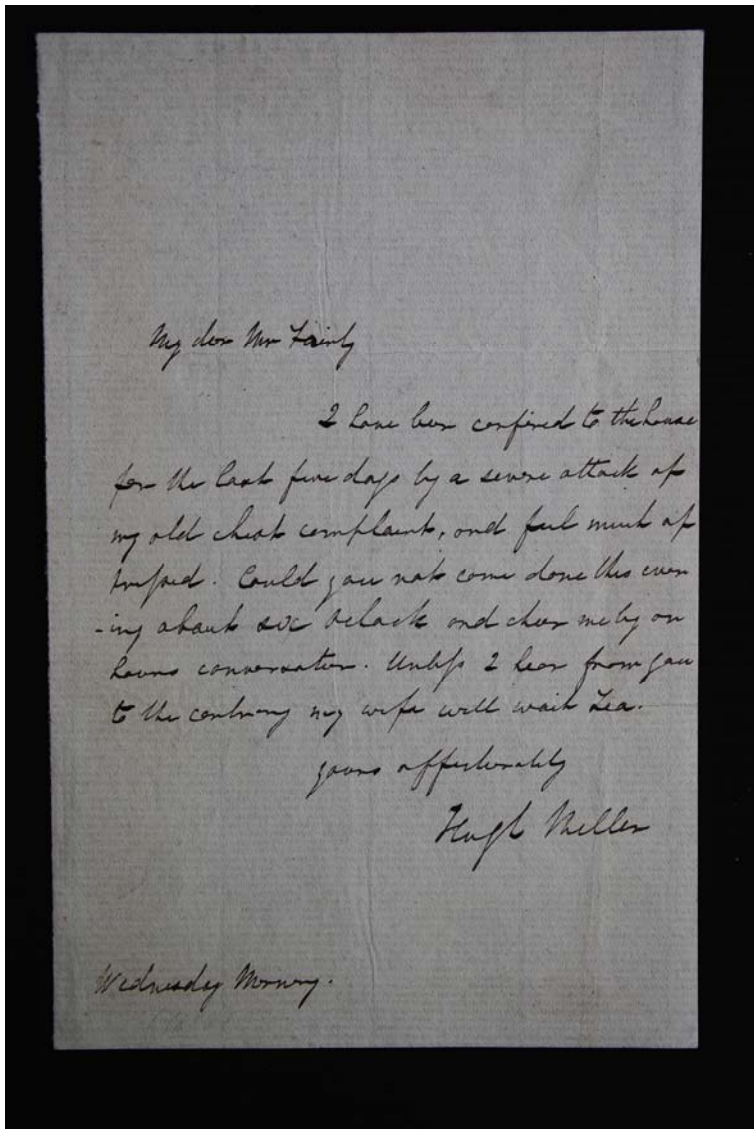 My dear Mr Fairly
I have been confined to the house
for the last five days by a severe attack of
my old chest complaint, and feel much of
. Could you not come done this even
-ing about six oclock and cheer me by an
hours conversation. Unless I hear from you
to the contrary my wife will wait Tea.
yours affectionately
Hugh Miller
Wednesday Morning.